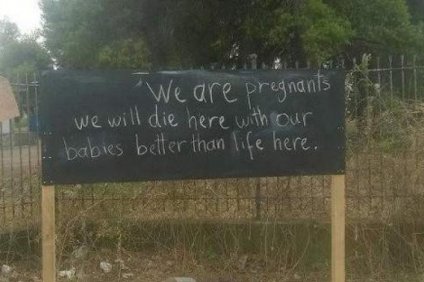 We are pregnants
we will die here with our
babies better than life here.